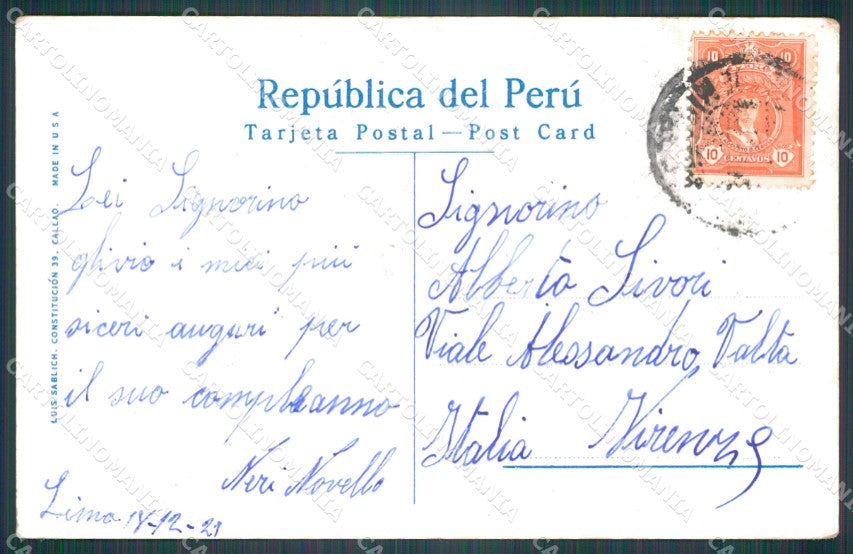 República del Perú
Tarjeta Postal — Post Card
LUIS SABLICH, CONSTITUCIÓN 39, CALLAO. MADE IN U S A
10 10
10 CENTAVOS 10
Lei Signorino
glivio i miei più
siceri auguri per
il suo compleanno
Neri Novello
Lima 18-12-21
Signorino
Alberto Sivori
Viale Alessandro Valta
Italia Firenze
CARTOLINOMANIA